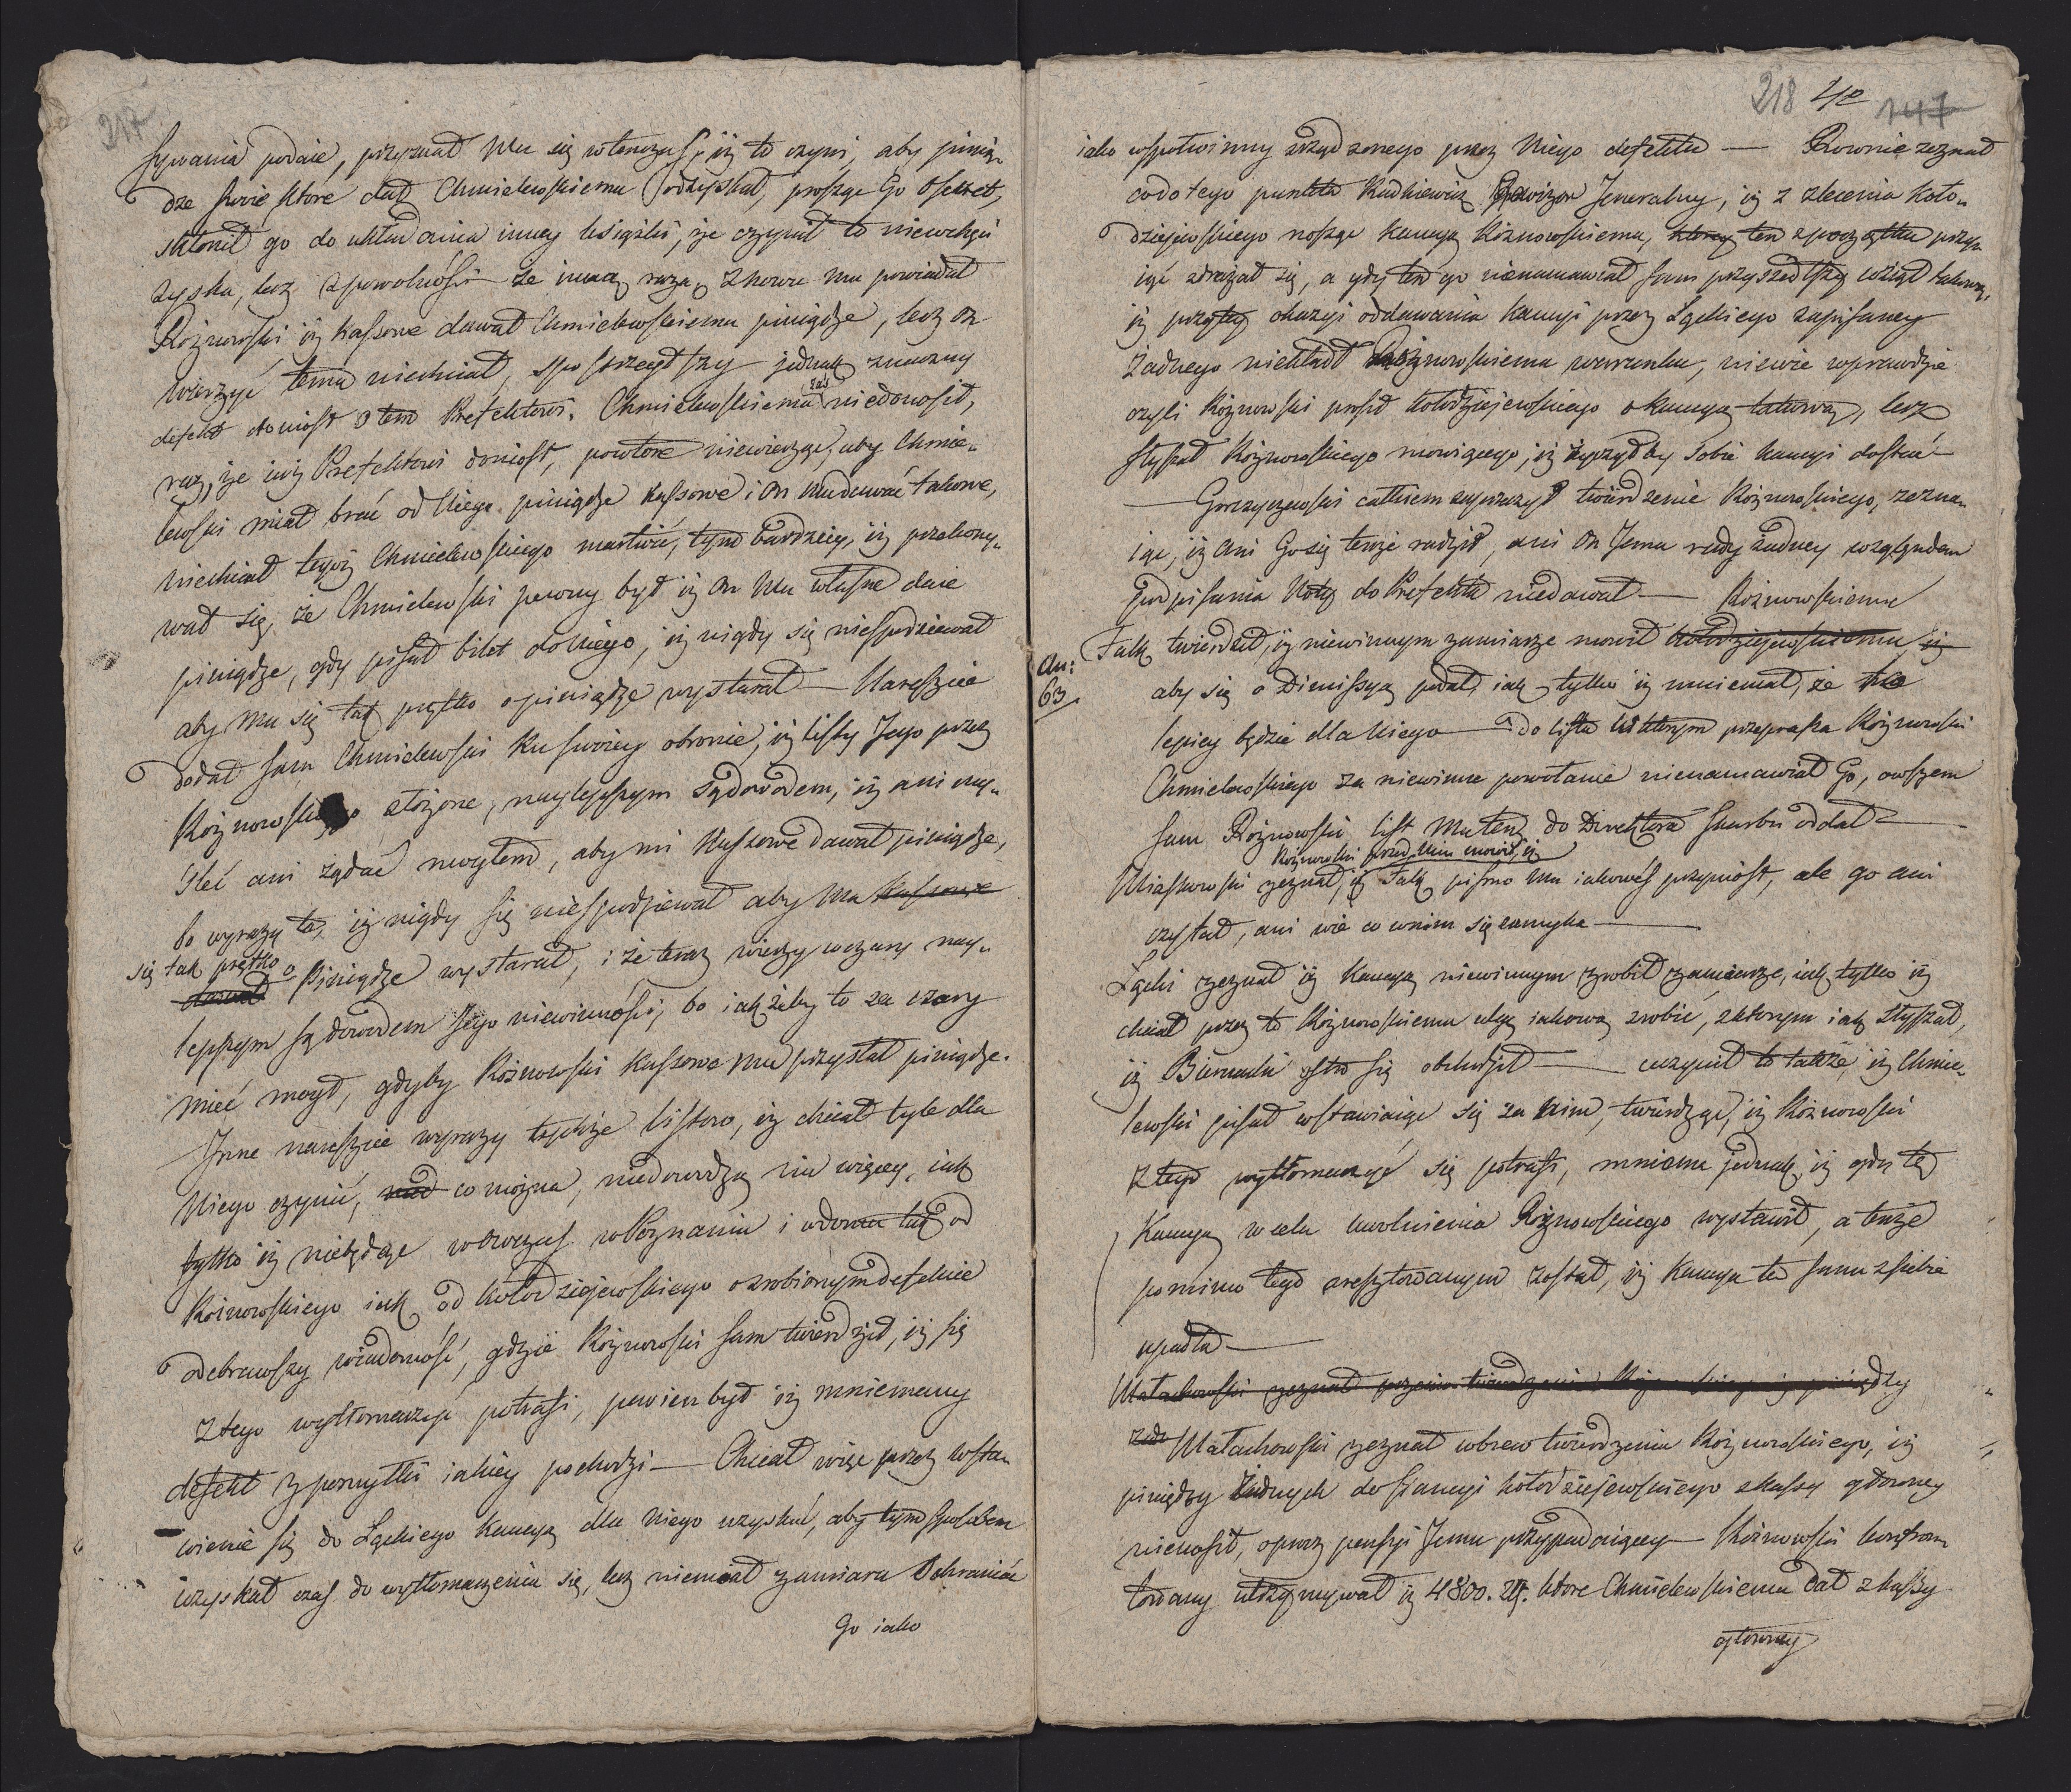 217
sywania podaie, przyznał Mu się wtenczas, iż to czyni, aby pienią-
dze swoie które dał Chmielewskiemu odzyskał, prosząc Go o sekret,
skłonił go do układania inney książki, że czynił to niewchęci
zysku, lecz z powolności — że inną razą znowu mu powiadał
Rożnowski iż kassowe dawał Chmielewskiemu pieniądze, lecz on
wierzyć temu niechciał, spostrzegłszy jednak znaczny
defekt doniósł o tem Prefektowi. Chmielewskiemu zaś niedonosił,
raz, że iuż Prefektowi doniosł, powtóre niewierząc, aby Chmie-
lewski miał brać od Niego pieniądze kassowe i on Mu dawać takowe,
niechciał tegoż Chmielewskiego martwić, tym bardziey, iż przekony-
wał się, że Chmielewski pewny był iż on Mu własne daie
pieniądze, gdy pisał bilet do Niego, iż nigdy się niespodziewał
aby Mu się tak prętko o pieniądze wystarał — Nareszcie
dodał sam Chmielewski ku swoiey obronie, iż listy Jego przez
Rożnowskiego złożone, naylepszym są dowodem, iż ani my-
śleć ani żądać mogłem, aby mi Kassowe dawał pieniądze,
bo wyrazy te, iż nigdy się niespodziewał aby Mu kassowe
się tak prętko o
dawał Pieniądze wystarał, i że teraz wierzy w czary nay-
lepszym są dowodem Jego niewinności, bo iakżeby to za czary
mieć mógł, gdyby Rożnowski kassowe Mu przysłał pieniądze.
Inne nareszcie wyrazy tychże listów, iż chciał tyle dla
Niego czynić, co można, niedowodzą nic więcey, iak
tylko iż niebędąc wówczas w Poznaniu i w domu tak od
Rożnowskiego iak od Kołodzieiewskiego o zrobionym defekcie
odebrawszy wiadomość, gdzie Rożnowski sam twierdził, iż się
z tego wytłomaczyć potrafi, pewien był iż mniemany
defekt z pomyłki iakiey pochodzi — Chciał więc przez wsta-
wienie się do Łąckiego kaucyą dla niego uzyskać, aby tym sposobem
uzyskał czas do wytłomaczenia się, lecz niemiał zamiaru Ochraniać
Go iako
218 42 147
iako współwinny zrządzonego przez Niego defektu — Rownie zeznał
co do tego punktu Rudkiewicz Rewizor Jeneralny, iż z zlecenia Koło-
dzieiewskiego nosząc kaucyą Rożnowskiemu, którey ten z początku przy-
iąć zdrażał się, a gdy ten go nienamawiał sam przyszedłszy wziął takową,
iż przy tey okazyi oddawania kaucyi przez Łąckiego zapisaney
żadnego niekładł Rożnowskiemu warunku, niewie wprawdzie
czyli Rożnowski prosił Kołodzieiewskiego o kaucyą takową, lecz
słyszał Rożnowskiego mowiącego, iż życzyłby sobie kaucyi dostać —
— Gorzyczewski całkiem zaprzeczył twierdzenie Rożnowskiego, zezna-
iąc, iż ani Go się tenże radził, ani on Jemu rady żadney względem
podpisania Noty do Prefekta niedawał — Rożnowskiemu
Falk twierdził, iż w niewinnym zamiarze mowił Kołodzieiewskiemu iż
An:
63
aby się o Dimissyą podał, iak tylko iż mniemał, że tak
lepiey będzie dla Niego — do listu w którym przeprasza Rożnowski
Chmielewskiego za niewinne powołanie nienamawiał Go, owszem
sam Rożnowski list Mu ten do Direktora Skarbu oddał —
Rożnowski przed Nim mowił, iż
Miaskowski zeznał, iż Falk pismo Mu iakoweś przyniósł, ale go ani
czytał, ani wie co w nim się zamyka —
Łącki zeznał iż kaucyą w niewinnym zrobił zamiarze, iak tylko iż
chciał przez to Rożnowskiemu ulgę iakową zrobić, z którym iak słyszał,
iż Biernacki ostro się obchodził — uczynił to także, iż Chmie-
lewski pisał wstawiaiąc się za nim, twierdząc, iż Rożnowski
z tego wytłomaczyć się potrafi, mniema jednak, iż gdy tę
Kaucyą w celu uwolnienia Rożnowskiego wystawił, a tenże
pomimo tego aresztowanym został, iż Kaucya ta sama z siebie
upadła —
Małachowski zeznał przeciw twierdzeniu Rożnowskiego iż pieniędzy
Małachowski zeznał wbrew twierdzeniu Rożnowskiego, iż
pieniędzy żadnych do stancyi Kołodzieiewskiego z kassy głowney
nienosił, oprócz pensyi Jemu przypadaiącey — Rożnowski konfron-
towany utrzymywał iż 4800. Zł. które Chmielewskiemu dał z kassy
głowney